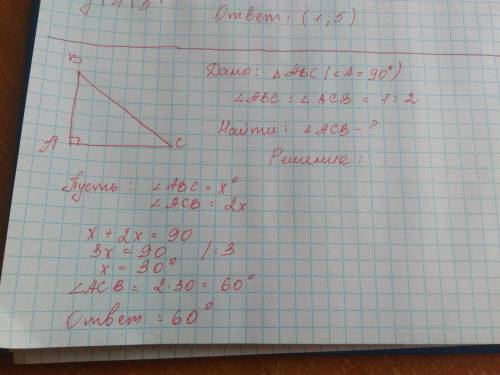 Ответ: (1;5)
В
А
С
Дано: △ABC (∠A=90°)
∠ABC : ∠ACB = 1:2
Найти: ∠ACB - ?
Решение:
Пусть: ∠ABC = x°
∠ACB = 2x
x + 2x = 90
3x = 90 /:3
x = 30°
∠ACB = 2·30 = 60°
Ответ = 60°